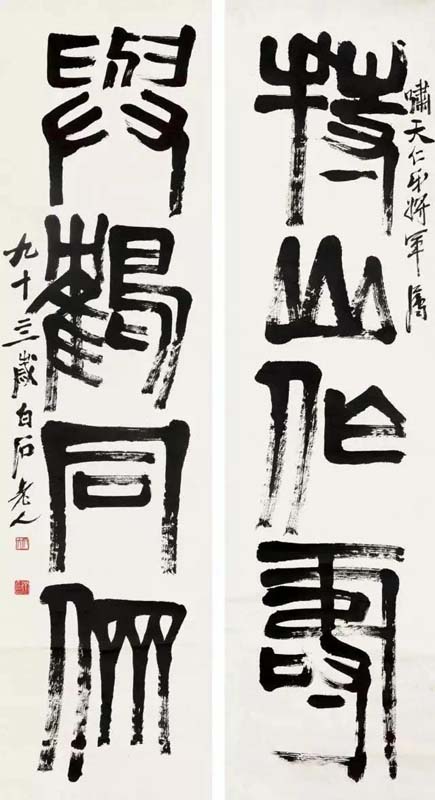 嘯天仁弟將軍屬
持山作壽
與鶴同
九十三歲白石老人